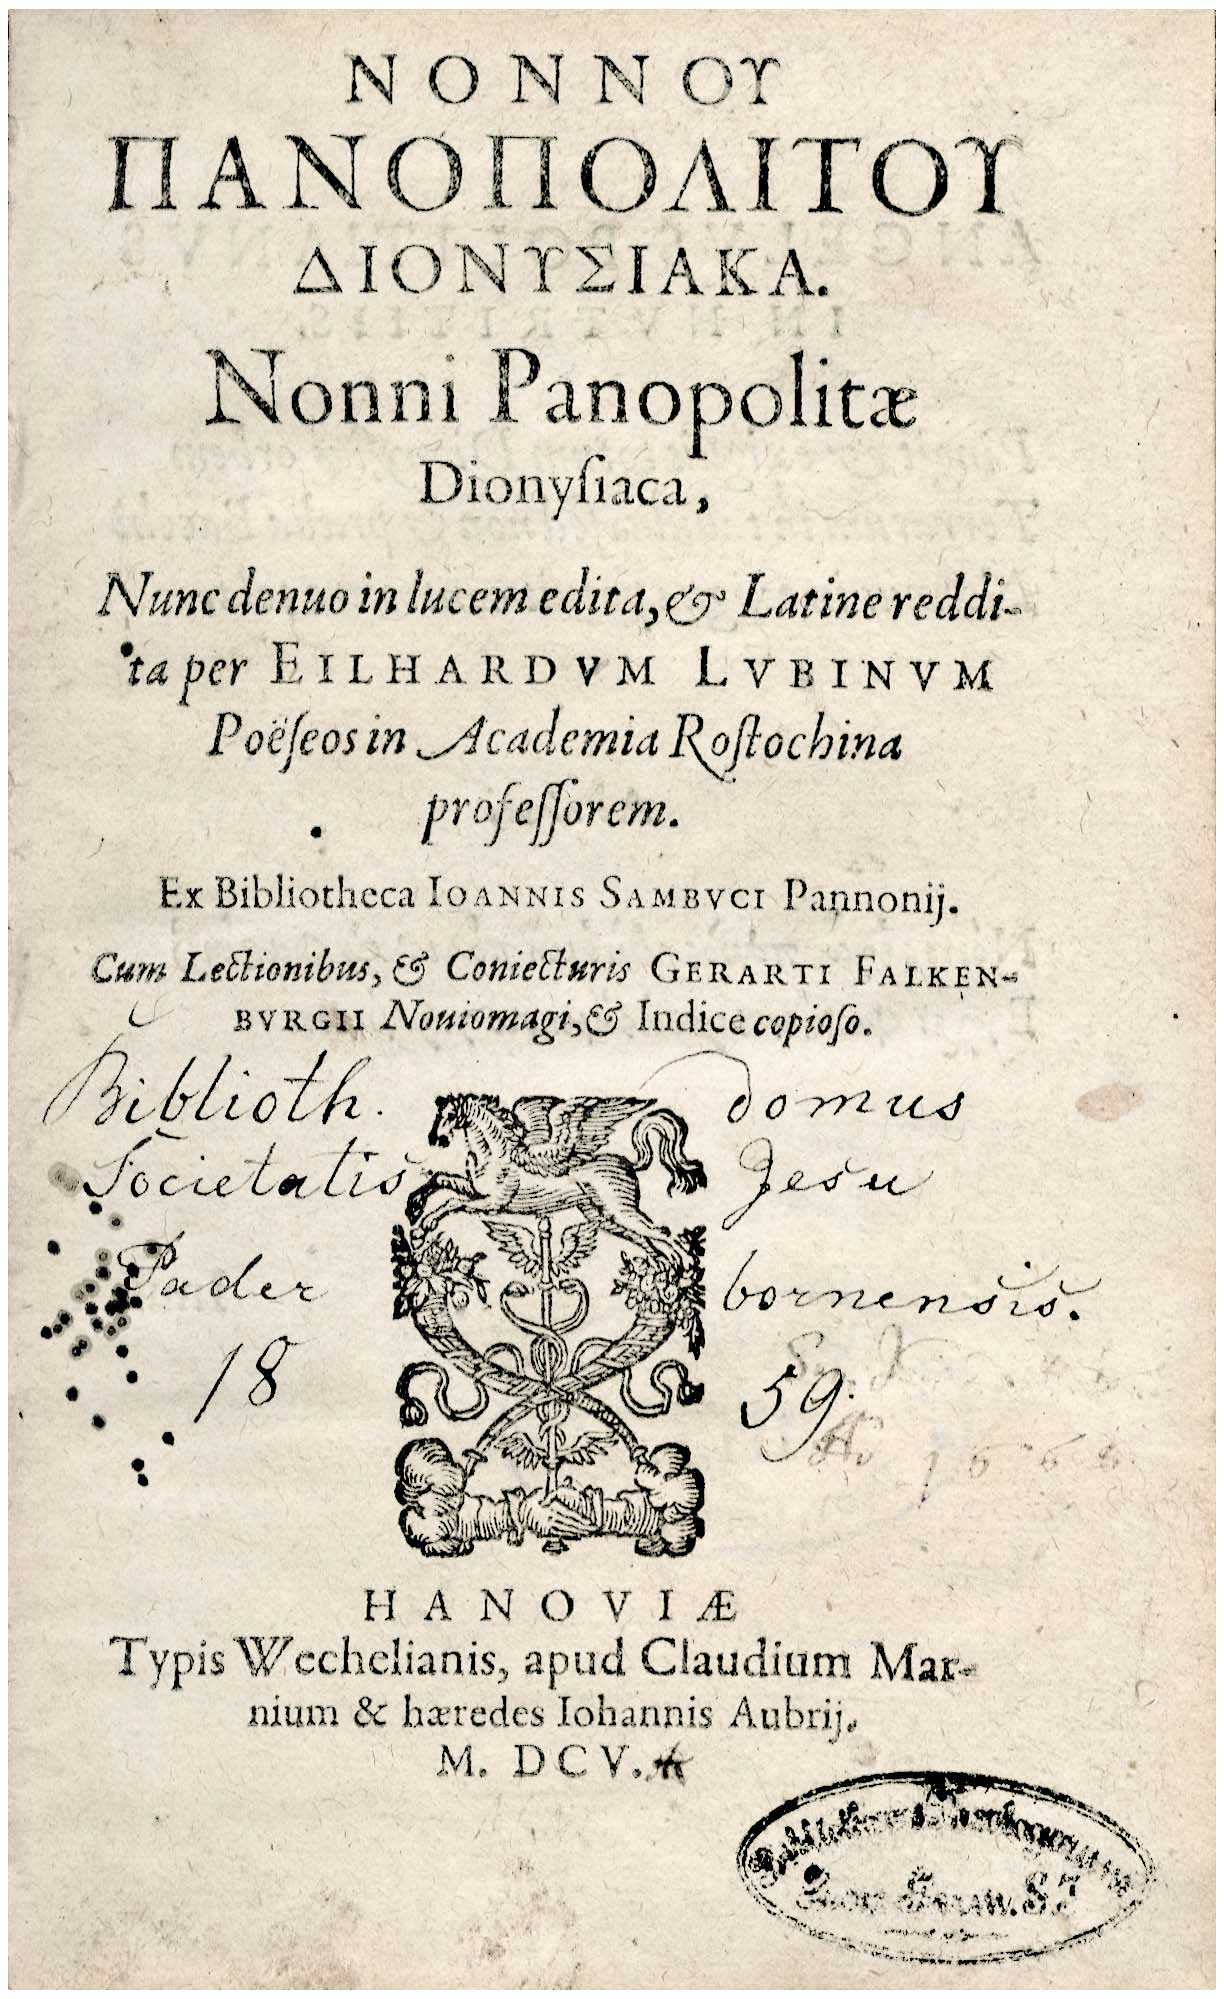 ΝΟΝΝΟΥ
ΠΑΝΟΠΟΛΙΤΟΥ
ΔΙΟΝΥΣΙΑΚΑ.
Nonni Panopolitæ
Dionyſiaca,
Nunc denuo in lucem edita, & Latine reddi-
ta per EILHARDVM LVBINVM
Poëſeos in Academia Roſtochina
profeſſorem.
Ex Bibliotheca IOANNIS SAMBVCI Pannonij.
Cum Lectionibus, & Coniecturis GERARTI FALKEN-
BVRGII Nouiomagi, & Indice copioſo.
Biblioth. domus
Societatis Jesu
Pader bornensis.
18 59.
HANOVIÆ
Typis Wechelianis, apud Claudium Mar-
nium & hæredes Iohannis Aubrij.
M. DCV.
Prov. Germ. S. J.